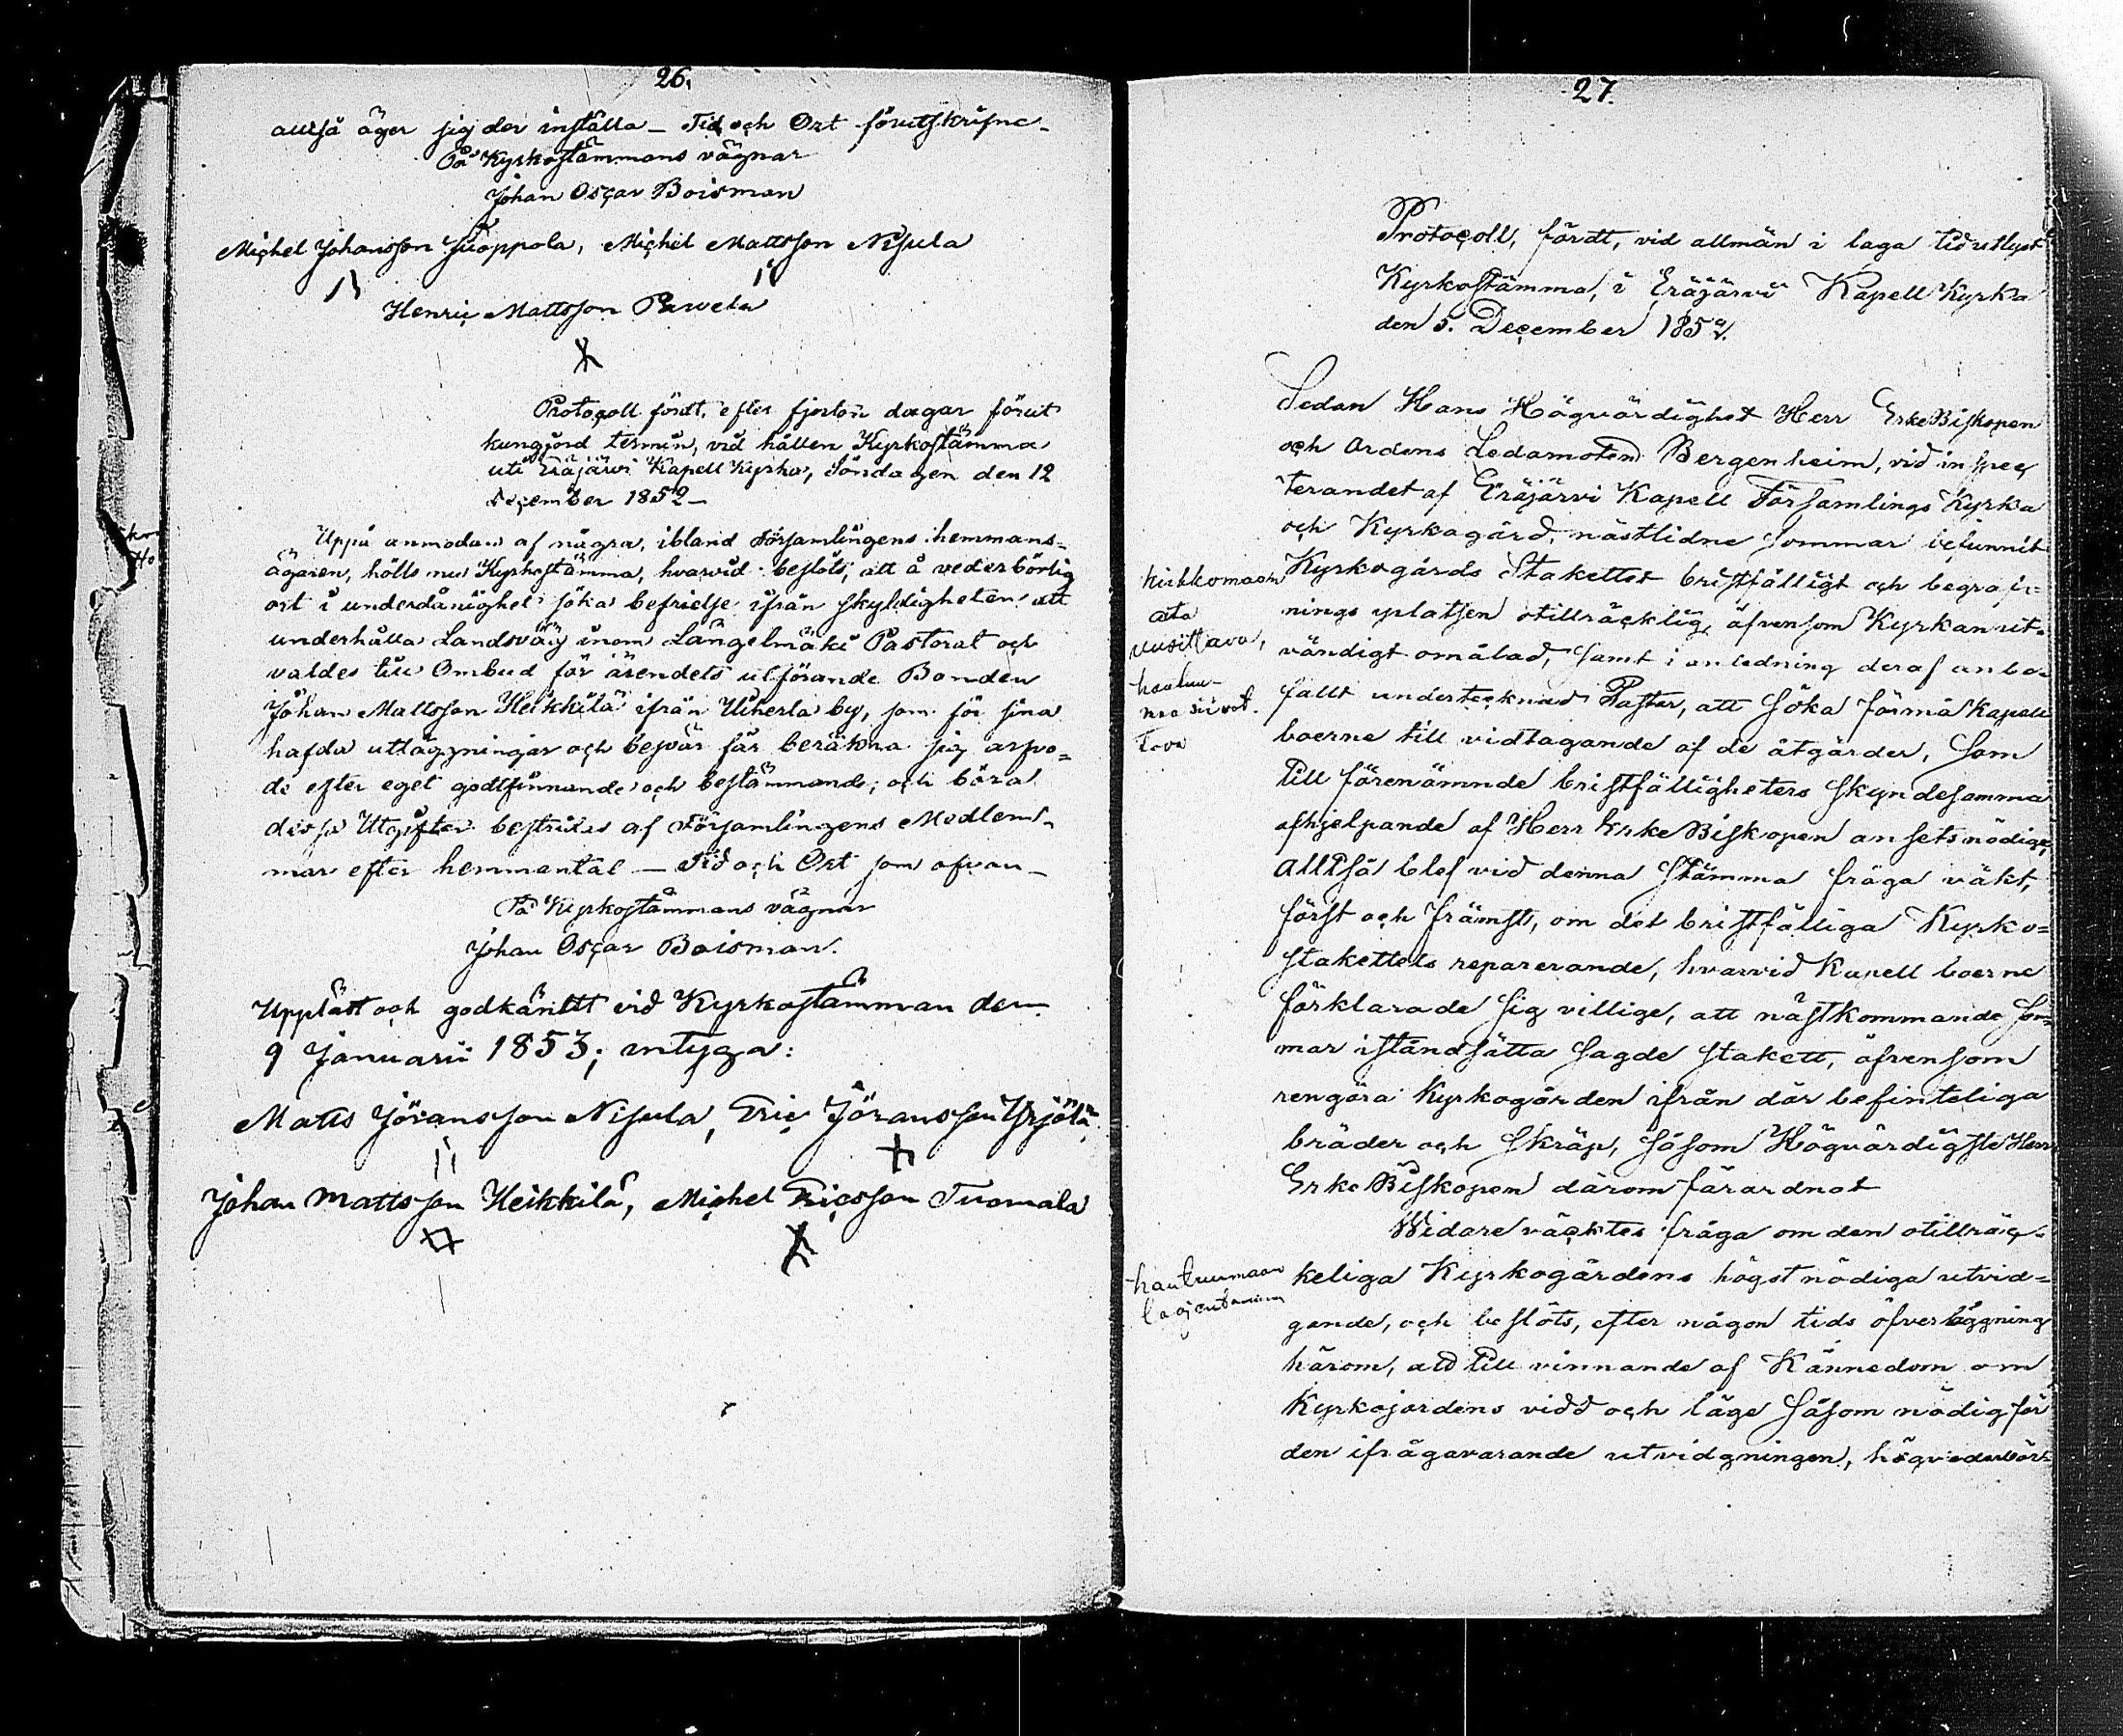 26.
alltså äger sig der inställa – Tid och Ort förutskrifne –
På Kyrkostämmans vägnar
Johan Oscar Boisman
Michel Johansson Juoppola, Michel Mattsson Nisula
Henric Mattsson Pawela
Protocoll fördt, efter fjorton dagar förut
kungjord termin, vid hållen Kyrkostämma
uti Eräjärvi Kapell Kyrka, Söndagen den 12
December 1852 –
Uppå anmodan af några, ibland Församlingens hemmans=
ägaren, hölls nu Kyrkostämma, hvarvid beslöts, att å vederbörlig
ort i underdånighet söka befrielse ifrån skyldigheten att
underhålla Landsväg inom Längelmäki Pastorat och
valdes till Ombud för ärendets utförande Bonden
Johan Mattsson Heikkilä ifrån Uiherla by, som för sina
hafda utläggningar och besvär får beräkna sig arfvo=
de efter eget godtfinnande och bestämmande; och böra
dessa Utgifter bestridas af Församlingens Medlem=
mar efter hemmantal – Tid och Ort som ofvan –
På Kyrkostämmans vägnar
Johan Oscar Boisman.
Uppläst och godkändt vid Kyrkostämman den
9 Januarii 1853; intyga:
Matts Jöransson Nisula, Eric Jöransson Yrjölä
Johan Mattsson Heikkilä, Michel Ericsson Tuomala
27.
Protocoll, fördt, vid allmän i laga tid utlyst
Kyrkostämma, i Eräjärvi Kapell Kyrka
den 5. December 1852.
Sedan Hans Högvördighet Herr ErkeBiskopen
och Ordens Ledamoten Bergenheim, vid inspec
terandet af Eräjärvi Kapell Församlings Kyrka
och Kyrkogård, nästlidne sommar befunnit
Kyrkogårds Stakettet bristfälligt och begraf=
nings platsen otillräcklig, äfvensom Kyrkan ut=
vändigt omålad, samt i anledning deraf anbe=
fallt undertecknad Pastor, att söka förmå Kapell
boerne till vidtagande af de åtgärder, som
till förenämnde bristfälligheters skyndesamma
afhjelpande af Herr ErkeBiskopen ansets nödige,
Alltså blef vid denna Stämma fråga väkt,
först och främst, om det bristfälliga Kyrko=
stakettets reparerande, hvarvid Kapell boerne
förklarade sig villige, att nästkommande som
mar iståndsätta sagde stakett, äfvensom
rengöra Kyrkogården ifrån där befinteliga
bräder och skräp, såsom Högvördigste Herr
ErkeBiskopen därom förordnat
Widare väcktes fråga om den otillräc=
keliga Kyrkogårdens högst nödiga utvid=
gande, och beslöts, efter någon tids öfverläggning
härom, att till vinnande af Kännedom om
Kyrkojordens vidd och läge såsom nödig för
den ifrågavarande utvidgningen, högvederbör=
kirkkomaan
aita
uusittava,
hautuu-
maa siivot.
tava
hautuumaan
laajentaminen